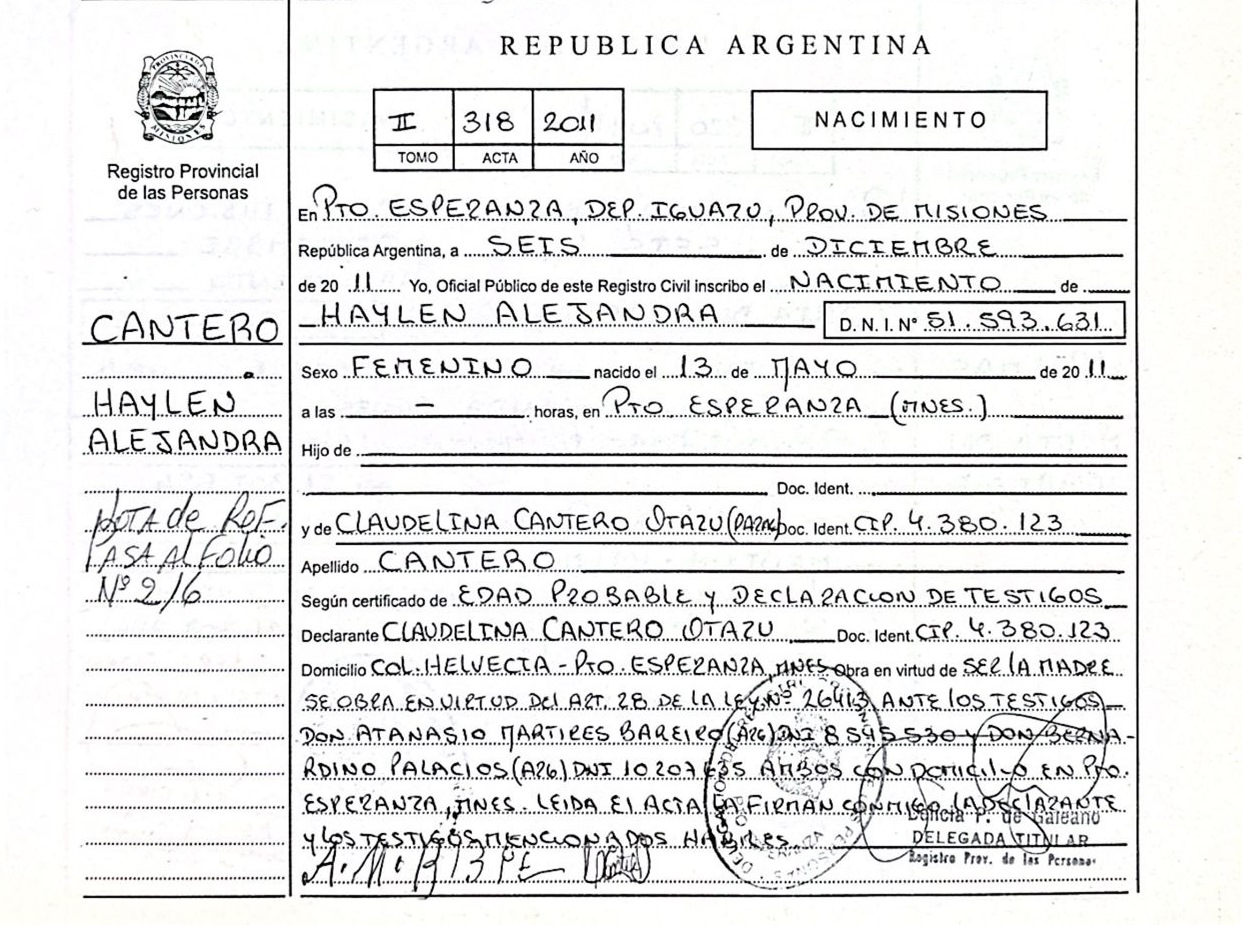 REPUBLICA ARGENTINA
PROVINCIA DE MISIONES
Registro Provincial
de las Personas
II 318 2011
TOMO ACTA AÑO
NACIMIENTO
CANTERO
HAYLEN
ALEJANDRA
NOTA de REF.
PASA AL FOLIO
Nº 2/6
En PTO. ESPERANZA, DEP. IGUAZU, PROV. DE MISIONES
República Argentina, a SEIS de DICIEMBRE
de 20 11 Yo, Oficial Público de este Registro Civil inscribo el NACIMIENTO de
HAYLEN ALEJANDRA D.N.I. Nº 51.593.631
Sexo FEMENINO nacido el 13 de MAYO de 20 11
a las - horas, en PTO ESPERANZA (MNES.)
Hijo de
Doc. Ident.
y de CLAUDELINA CANTERO OTAZU (PARAG) Doc. Ident. CIP. 4.380.123
Apellido CANTERO
Según certificado de EDAD PROBABLE y DECLARACION DE TESTIGOS
Declarante CLAUDELINA CANTERO OTAZU Doc. Ident. CIP. 4.380.123
Domicilio COL. HELVECIA - PTO. ESPERANZA, MNES Obra en virtud de SER LA MADRE
SE OBRA EN VIRTUD DEL ART. 28 DE LA LEY Nº 26413 ANTE LOS TESTIGOS
DON ATANASIO MARTIRES BAREIRO (ARG) DNI 8 545 530 y DON BERNA-
RDINO PALACIOS (ARG) DNI 10 207 635 AMBOS CON DOMICILIO EN PTO.
ESPERANZA, MNES. LEIDA EL ACTA LA FIRMAN CONMIGO LA DECLARANTE
y LOS TESTIGOS MENCIONADOS HABILES.
P. de Galeano
DELEGADA TITULAR
Registro Prov. de las Personas